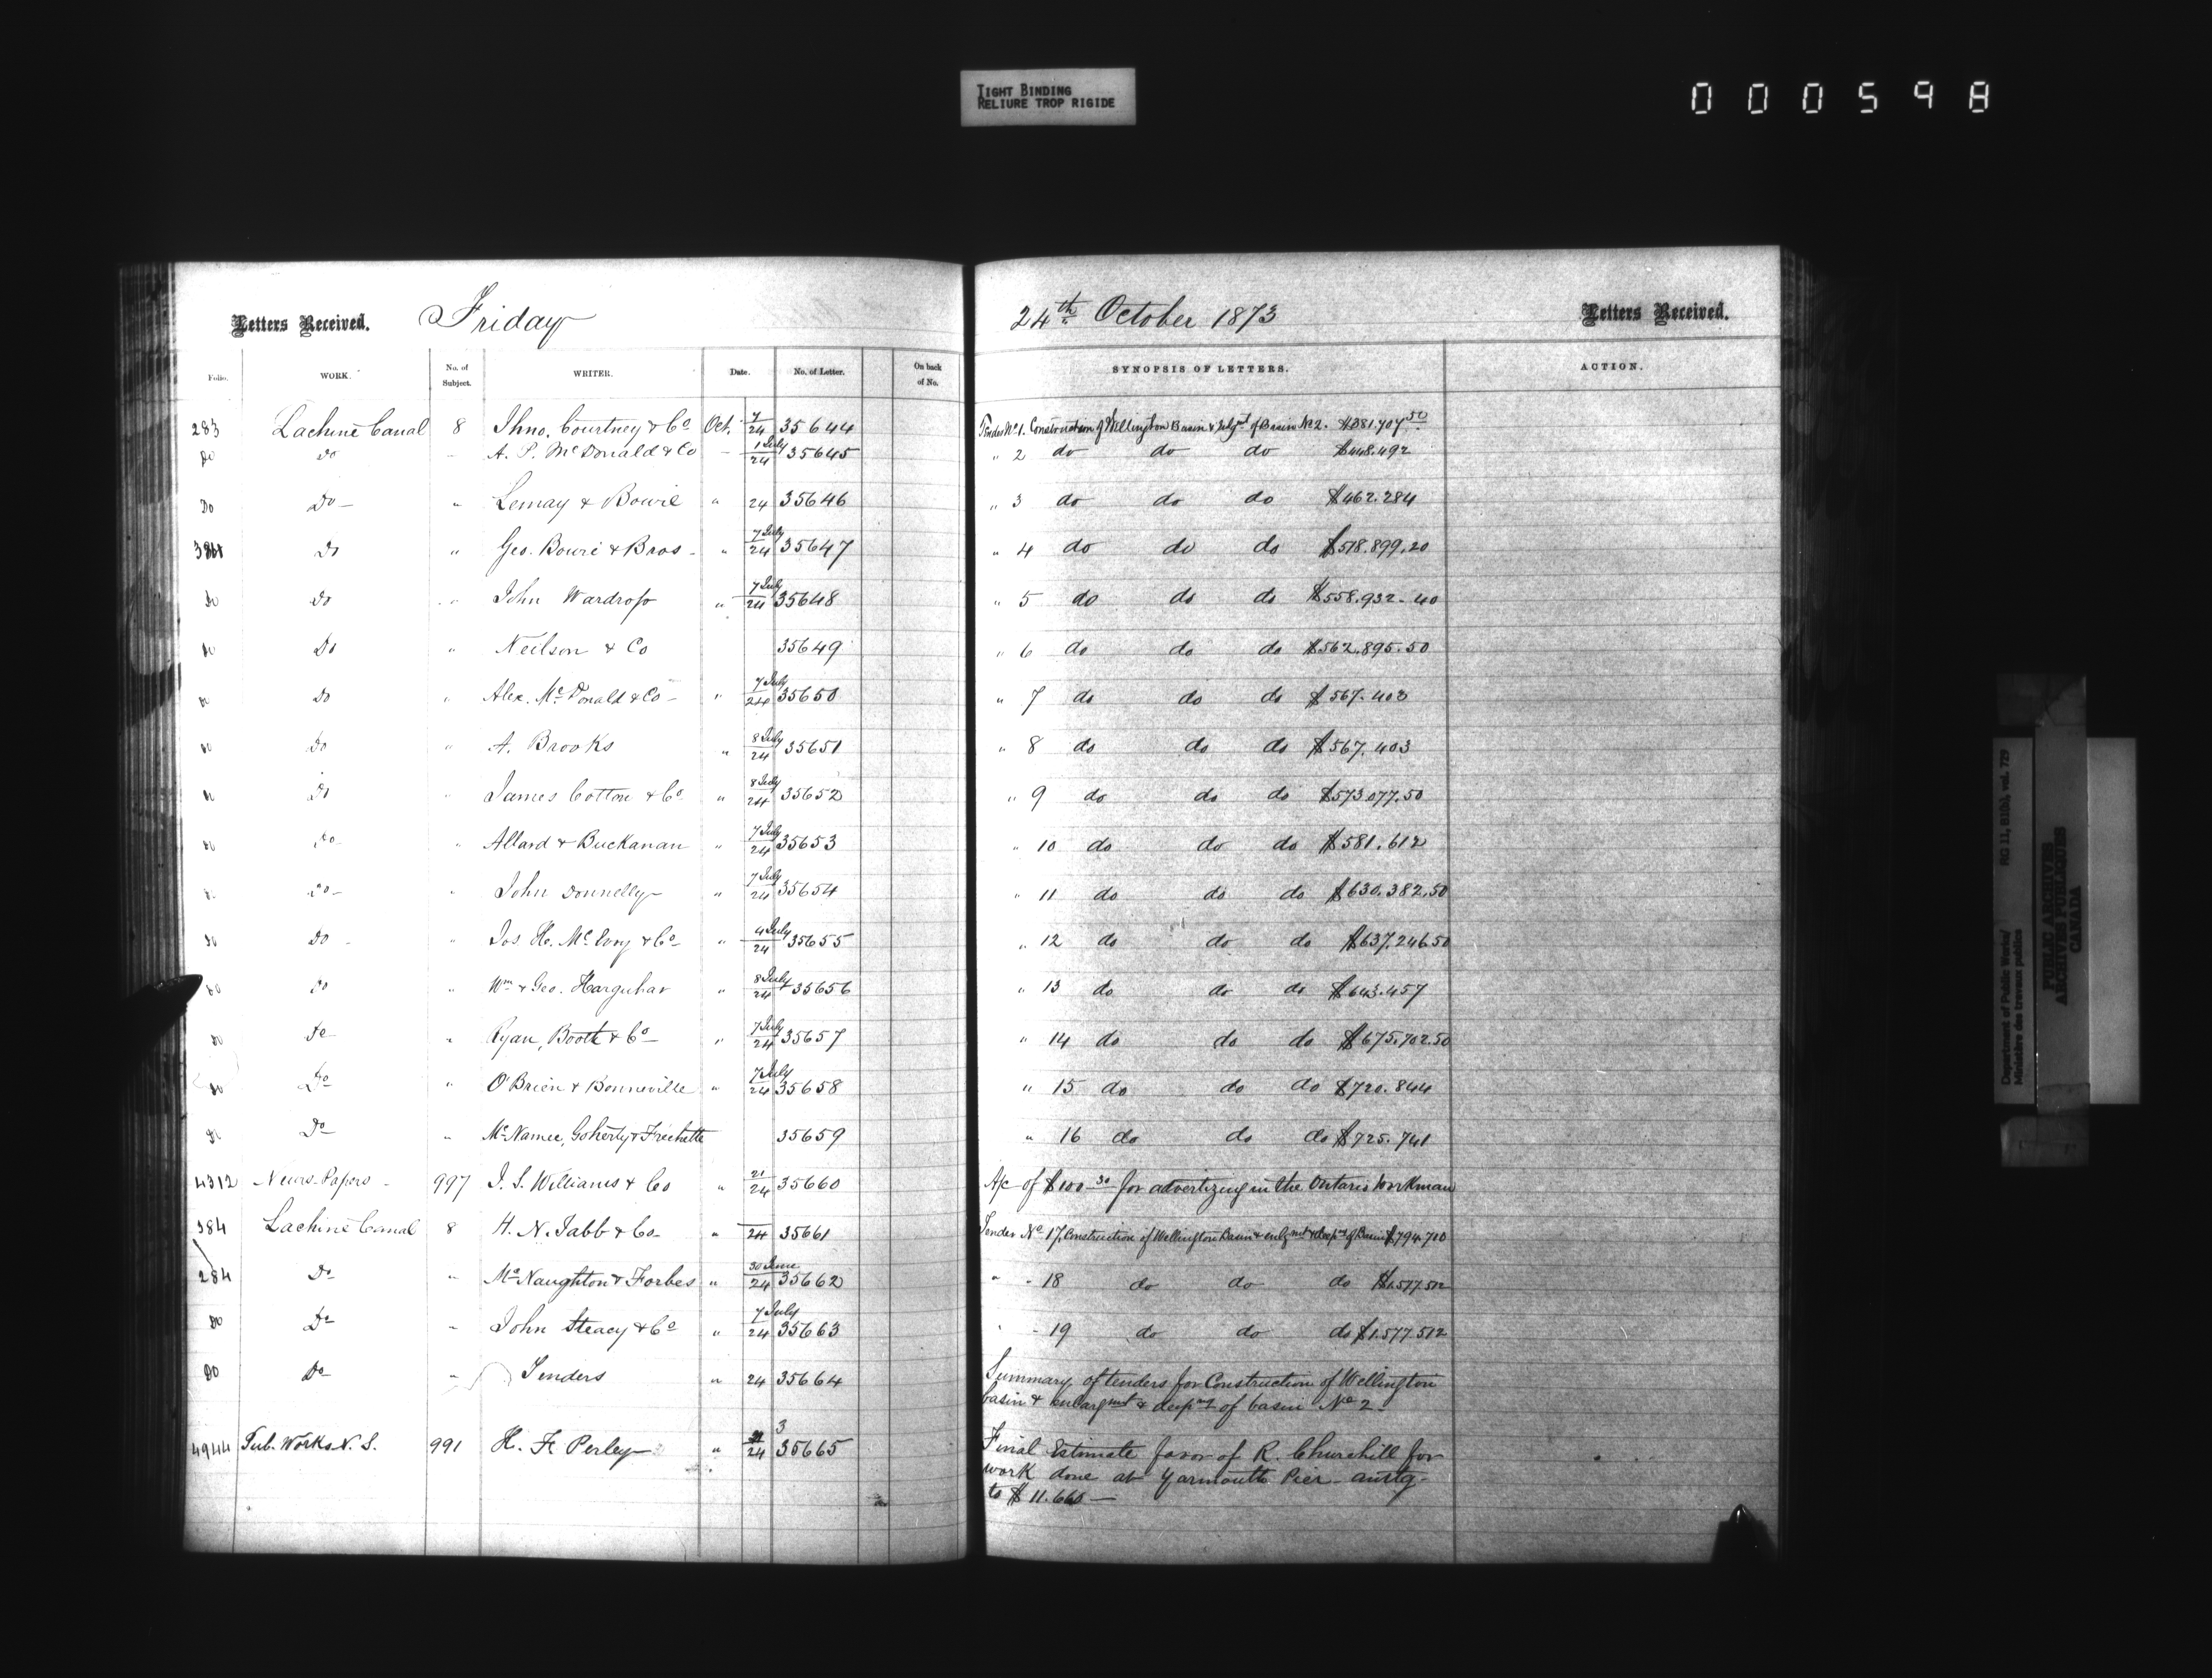 TIGHT BINDING
RELIURE TROP RIGIDE
0 0 0 5 9 8
Letters Received. Friday 24th October 1873 Letters Received.
Folio. WORK. No. of Subject. WRITER. Date. No. of Letter. On back of No. SYNOPSIS OF LETTERS. ACTION.
283 Lachine Canal 8 Jhno. Courtney & Co Oct. 7/24 35644 Tender No 1. Construction of Wellington Basin & of Basin No 2. $381.707 50
Do Do A. P. McDonald & Co 1 July/24 35645 " 2 do do do $448.492
Do Do " Lemay & Bowie " 24 35646 " 3 do do do $462.284
Do " Geo. Bowie & Bros " 7 July/24 35647 " 4 do do do $518.899.20
Do Do " John Wardrop " 7 July/24 35648 " 5 do do do $558.932.40
Do Do " Neilson & Co 35649 " 6 do do do $562.895.50
Do Do " Alex. McDonald & Co " 7 July/24 35650 " 7 do do do $567.403
Do Do " A. Brooks " 8 July/24 35651 " 8 do do do $567.403
Do Do " James Cotton & Co " 8 July/24 35652 " 9 do do do $573.077.50
Do Do " Allard & Buckanan " 7 July/24 35653 " 10 do do do $581.612
Do Do " John Donnelly " 7 July/24 35654 " 11 do do do $630.382.50
Do Do " Jos H. McEvoy & Co " 4 July/24 35655 " 12 do do do $637.246.50
Do Do " Wm & Geo. Harguhar " 8 July/24 35656 " 13 do do do $643.457
Do Do " Ryan, Booth & Co " 7 July/24 35657 " 14 do do do $675.702.50
Do Do " O'Brien & Bonneville " 7 July/24 35658 " 15 do do do $720.844
Do Do " McNamee, Goherty & Frechette 35659 " 16 do do do $725.741
4312 News-Papers 997 J. S. Williams & Co " 21/24 35660 A/c of $100 30 for advertizing in the Ontario Workman
384 Lachine Canal 8 H. N. Jabb & Co " 24 35661 Tender No 17, Construction of Wellington Basin & enlgmt & deepng of Basin $794.700
284 Do " McNaughton & Forbes " 30 June/24 35662 " " 18 do do do $1.577.512
Do Do " John Steacy & Co " 7 July/24 35663 " " 19 do do do $1.577.512
Do Do " Tenders " 24 35664 Summary of tenders for Construction of Wellington
basin & enlargmt & deepng of basin No 2
4944 Pub. Works N. S. 991 H. F. Perley " 21/24 3 35665 Final Estimate favor of R. Churchill for
work done at Yarmouth Pier - amtg-
to $11.660
Department of Public Works/ RG 11, B1(b), vol. 729
Ministère des travaux publics
PUBLIC ARCHIVES
ARCHIVES PUBLIQUES
CANADA